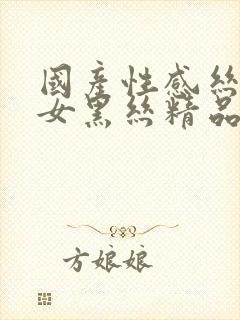 國產性感絲
女黑丝精品
方娘娘